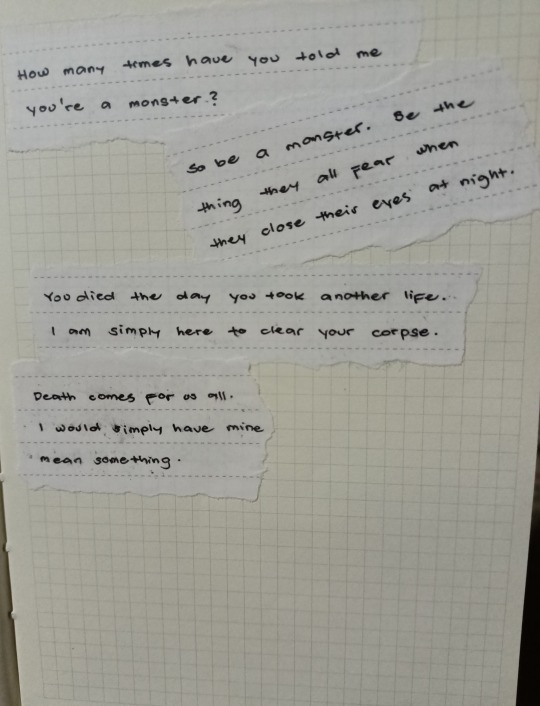 How many times have you told me
you're a monster?
So be a monster. Be the
thing they all fear when
they close their eyes at night.
You died the day you took another life.
I am simply here to clear your corpse.
Death comes for us all.
I would simply have mine
mean something.